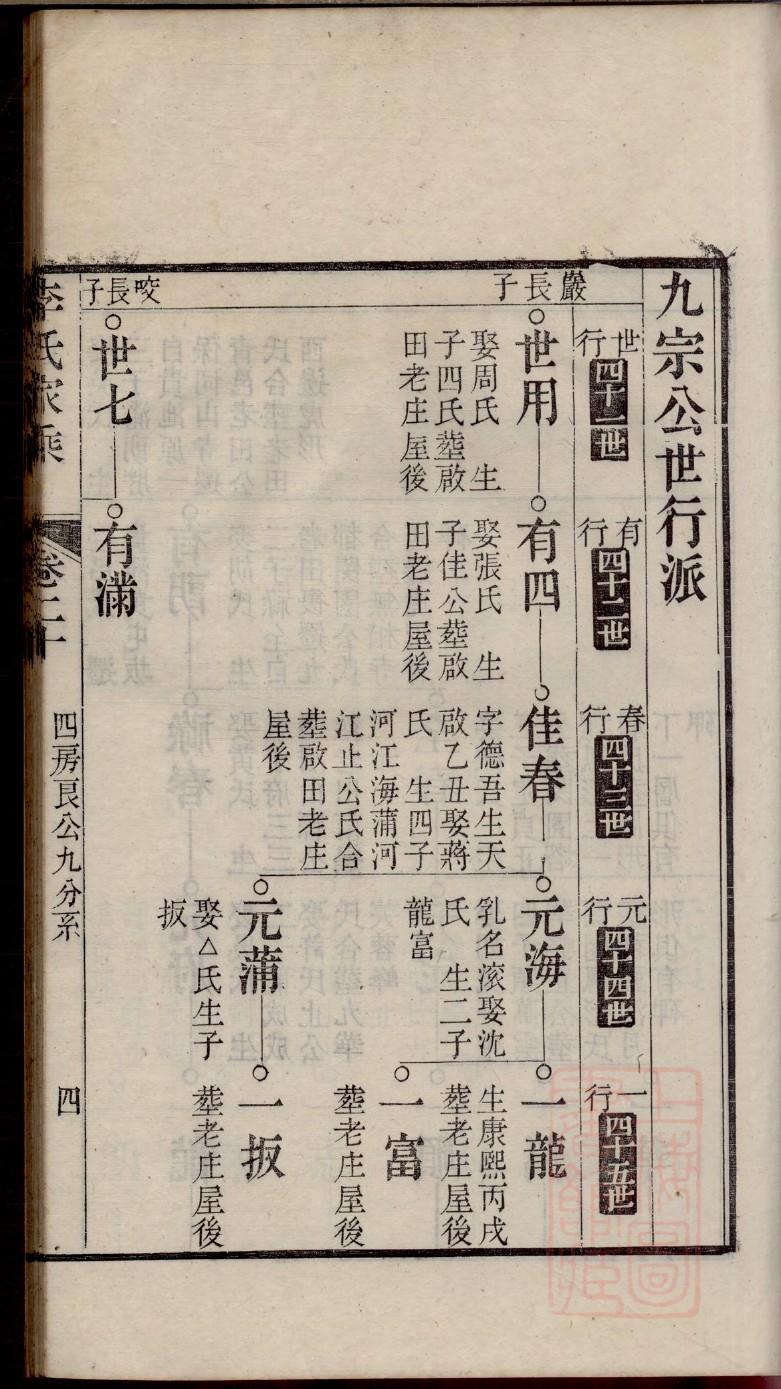 九宗公世行派
世行 四十一世
有行 四十二世
春行 四十三世
元行 四十四世
一行 四十五世
嚴長子
世用
娶周氏 生
子四氏塟啟
田老庄屋後
有四
娶張氏 生
子佳公塟啟
田老庄屋後
佳春
字德吾生天
啟乙丑娶蔣
氏 生四子
河江海蒲河
江止公氏合
塟啟田老庄
屋後
元海
乳名滚娶沈
氏 生二子
龍富
一龍
生康熙丙戌
塟老庄屋後
一富
塟老庄屋後
元蒲
娶△氏生子
扳
一扳
塟老庄屋後
咬長子
世七
有滿
李氏家乘
卷二十
四房良公九分系
四